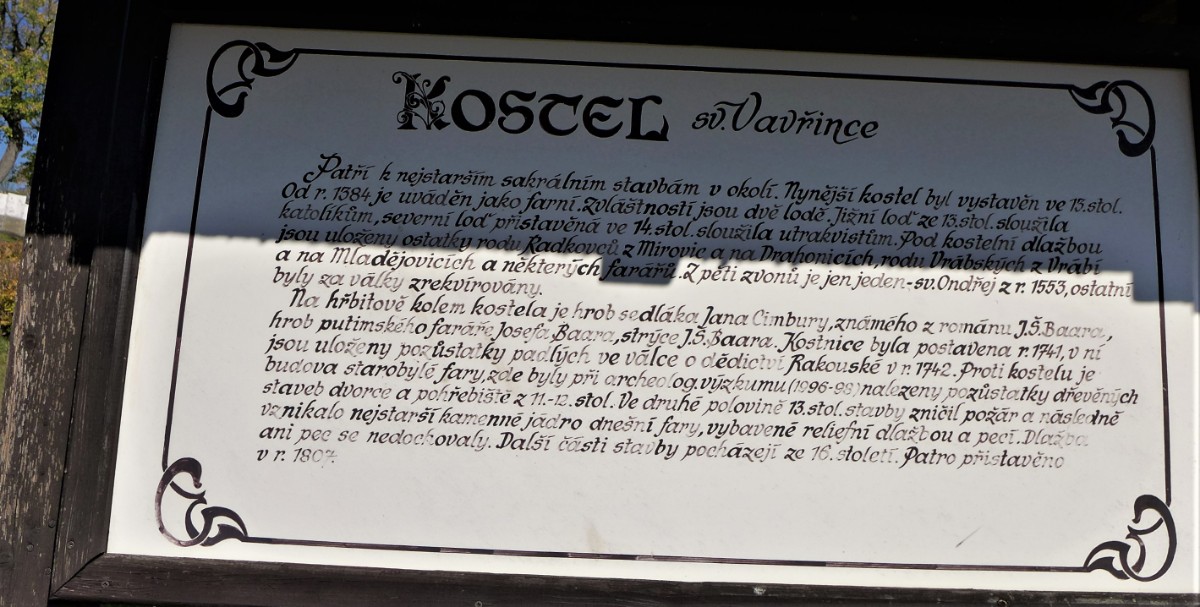 Kostel sv. Vavřince
Patří k nejstarším sakrálním stavbám v okolí. Nynější kostel byl vystavěn ve 13. stol.
Od r. 1384 je uváděn jako farní. Zvláštností jsou dvě lodě. Jižní loď ze 13. stol. sloužila
katolíkům, severní loď přistavěná ve 14. stol. sloužila utrakvistům. Pod kostelní dlažbou
jsou uloženy ostatky rodu Radkovců z Mirovic a na Drahonicích, rodu Vrábských z Vrábí
a na Mladějovicích a některých farářů. Z pěti zvonů je jen jeden - sv. Ondřej z r. 1553, ostatní
byly za války zrekvírovány.
Na hřbitově kolem kostela je hrob sedláka Jana Cimbury, známého z románu J.Š. Baara,
hrob putimského faráře Josefa Baara, strýce J.Š. Baara. Kostnice byla postavena r. 1741, v ní
jsou uloženy pozůstatky padlých ve válce o dědictví Rakouské v r. 1742. Proti kostelu je
budova starobylé fary, zde byly při archeolog. výzkumu (1996-98) nalezeny pozůstatky dřevěných
staveb dvorce a pohřebiště z 11.-12. stol. Ve druhé polovině 13. stol. stavby zničil požár a následně
vznikalo nejstarší kamenné jádro dnešní fary, vybavené reliefní dlažbou a pecí. Dlažba
ani pec se nedochovaly. Další části stavby pocházejí ze 16. století. Patro přistavěno
v r. 1807.